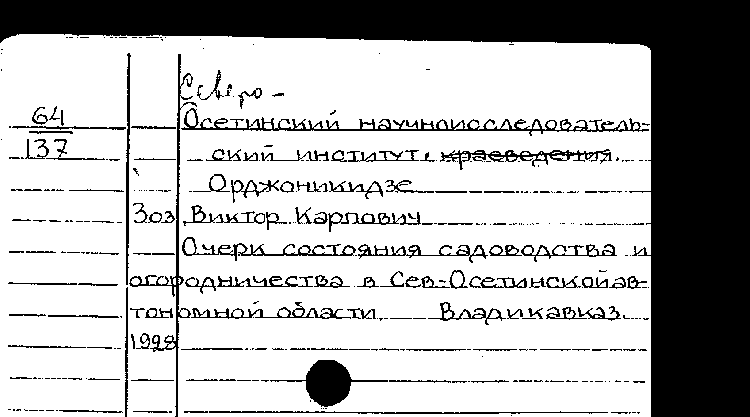 Северо-
64 Осетинский научноисследователь-
137 ский институт. краеведения.
Орджоникидзе
Зоз Виктор Карпович
Очерк состояния садоводства и
огородничества в Сев-Осетинской ав-
тономной области. Владикавказ.
1928